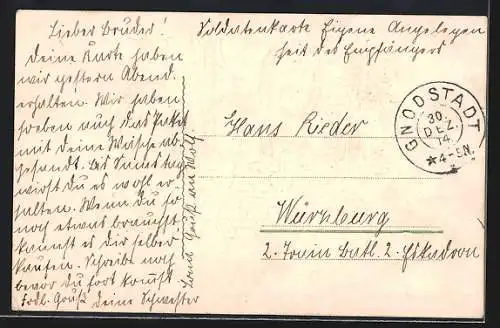 Lieber Bruder!
Deine Karte haben
wir gestern Abend
erhalten. Wir haben
soeben auch das Paket
mit deine Wäsche ab-
gesandt. Bis Samstag
wirst du es wohl er-
halten. Wenn du so
noch etwas brauchst
kannst es dir selber
kaufen. Schreibe noch
bevor du fort kommst
Frdl. Gruß Deine Schwester
Gruß an Wolf.
Soldatenkarte Eigene Angelegen
heit des Empfängers
Hans Rieder
Würzburg
2. Train Batl. 2. Eskadron
GNODSTADT
30.
DEZ.
14
4-5N.